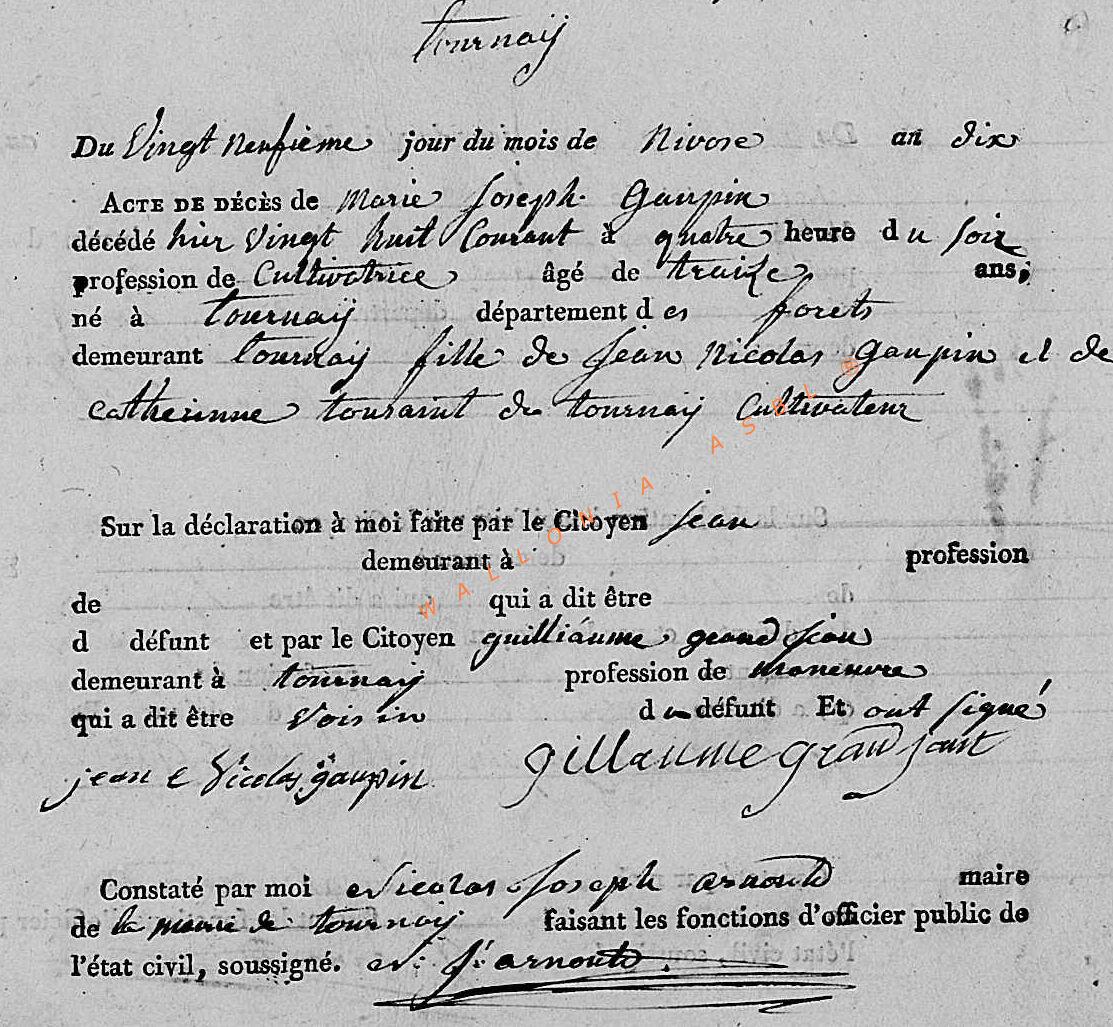 tournaÿ
Du Vingt neufième jour du mois de Nivose an dix
ACTE DE DÉCÈS de Marie Joseph Gaupin
décédé hier Vingt huit Courant à quatre heure du soir
profession de Cultivatrice âgé de traize ans,
né à tournaÿ département des forets
demeurant tournaÿ fille de jean Nicolas gaupin et de
Catherinne tousaint de tournaÿ Cultivateur
Sur la déclaration à moi faite par le Citoyen jean
demeurant à profession
de qui a dit être
d défunt et par le Citoyen guilliaume grand jean
demeurant à tournaÿ profession de maneuvre
qui a dit être Voisin du défunt Et ont signé
jean Nicolas gaupin gillaume grand jant
Constaté par moi Nicolas Joseph arnould maire
de la mairie de tournaÿ faisant les fonctions d'officier public de
l'état civil, soussigné. N: J: arnould
WALLONIA ASBL ®